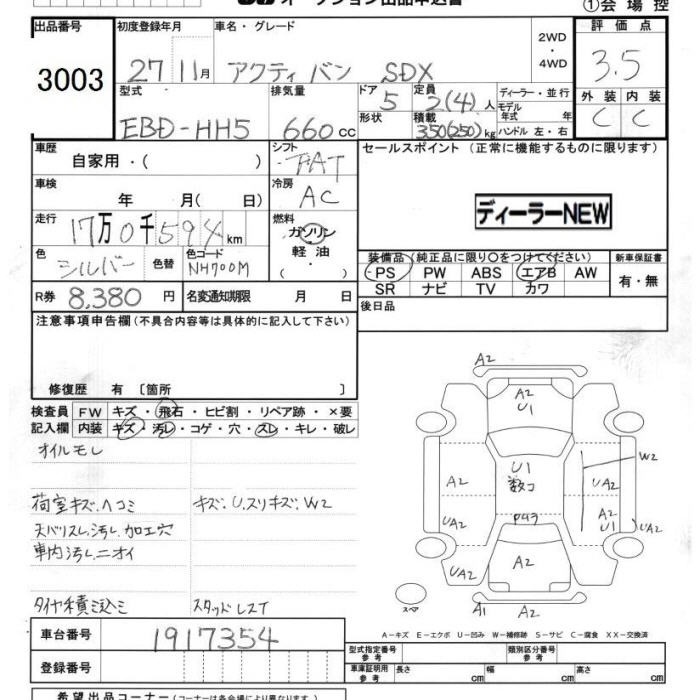 オークション出品申込書
①会場控
出品番号 初度登録年月 車名・グレード 評価点
3003 27 11月 アクティ バン SDX 2WD・4WD 3.5
型式 排気量 ドア 定員 ディーラー・並行 外装 内装
5 2(4)人 モデル年式 年 C C
EBD-HH5 660cc 形状 積載 350(250)kg ハンドル 左・右
車歴 シフト セールスポイント (正常に機能するものに限ります)
自家用・( ) FAT
車検 冷房
年 月( 日) AC
ディーラーNEW
走行 燃料
17万0千594km ガソリン
軽油
( ・ )
色 シルバー 色替 色コード NH700M
装備品(純正品に限り○をつけてください) 新車保証書
PS PW ABS エアB AW 有・無
SR ナビ TV カワ
R券 8,380円 名変通知期限 月 日 後日品
注意事項申告欄(不具合内容等は具体的に記入して下さい)
修復歴 有 〔箇所 〕
検査員 FW キズ・飛石・ヒビ割・リペア跡・×要
記入欄 内装 キズ・汚レ・コゲ・穴・スレ・キレ・破レ
オイルモレ
荷室キズ.ヘコミ キズ.U.スリキズ.W2
天バリスレ.汚レ.加工穴
車内汚レ.ニオイ
タイヤ積込ミ スタッドレスT
A2
A2
U1
U1
W2
A2 UA2
UA2 A2
U1 UA2
A2
UA2
スペア A1 A2
A−キズ E−エクボ U−凹ミ W−補修跡 S−サビ C−腐食 XX−交換済
車台番号 1917354
型式指定番号 参考 類別区分番号 参考
登録番号 車庫証明用 参考 長さ cm 幅 cm 高さ cm
希望出品コーナー(コーナーは各会場により異なります)